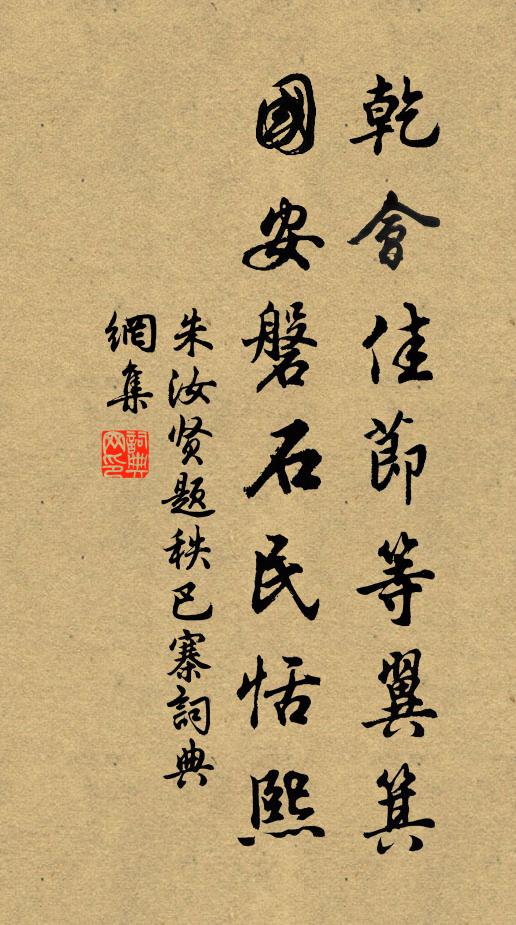 乾會佳節等翼箕
國安磐石民恬熙
朱汝贤题秩巴寨詞典
網集
詞典网印